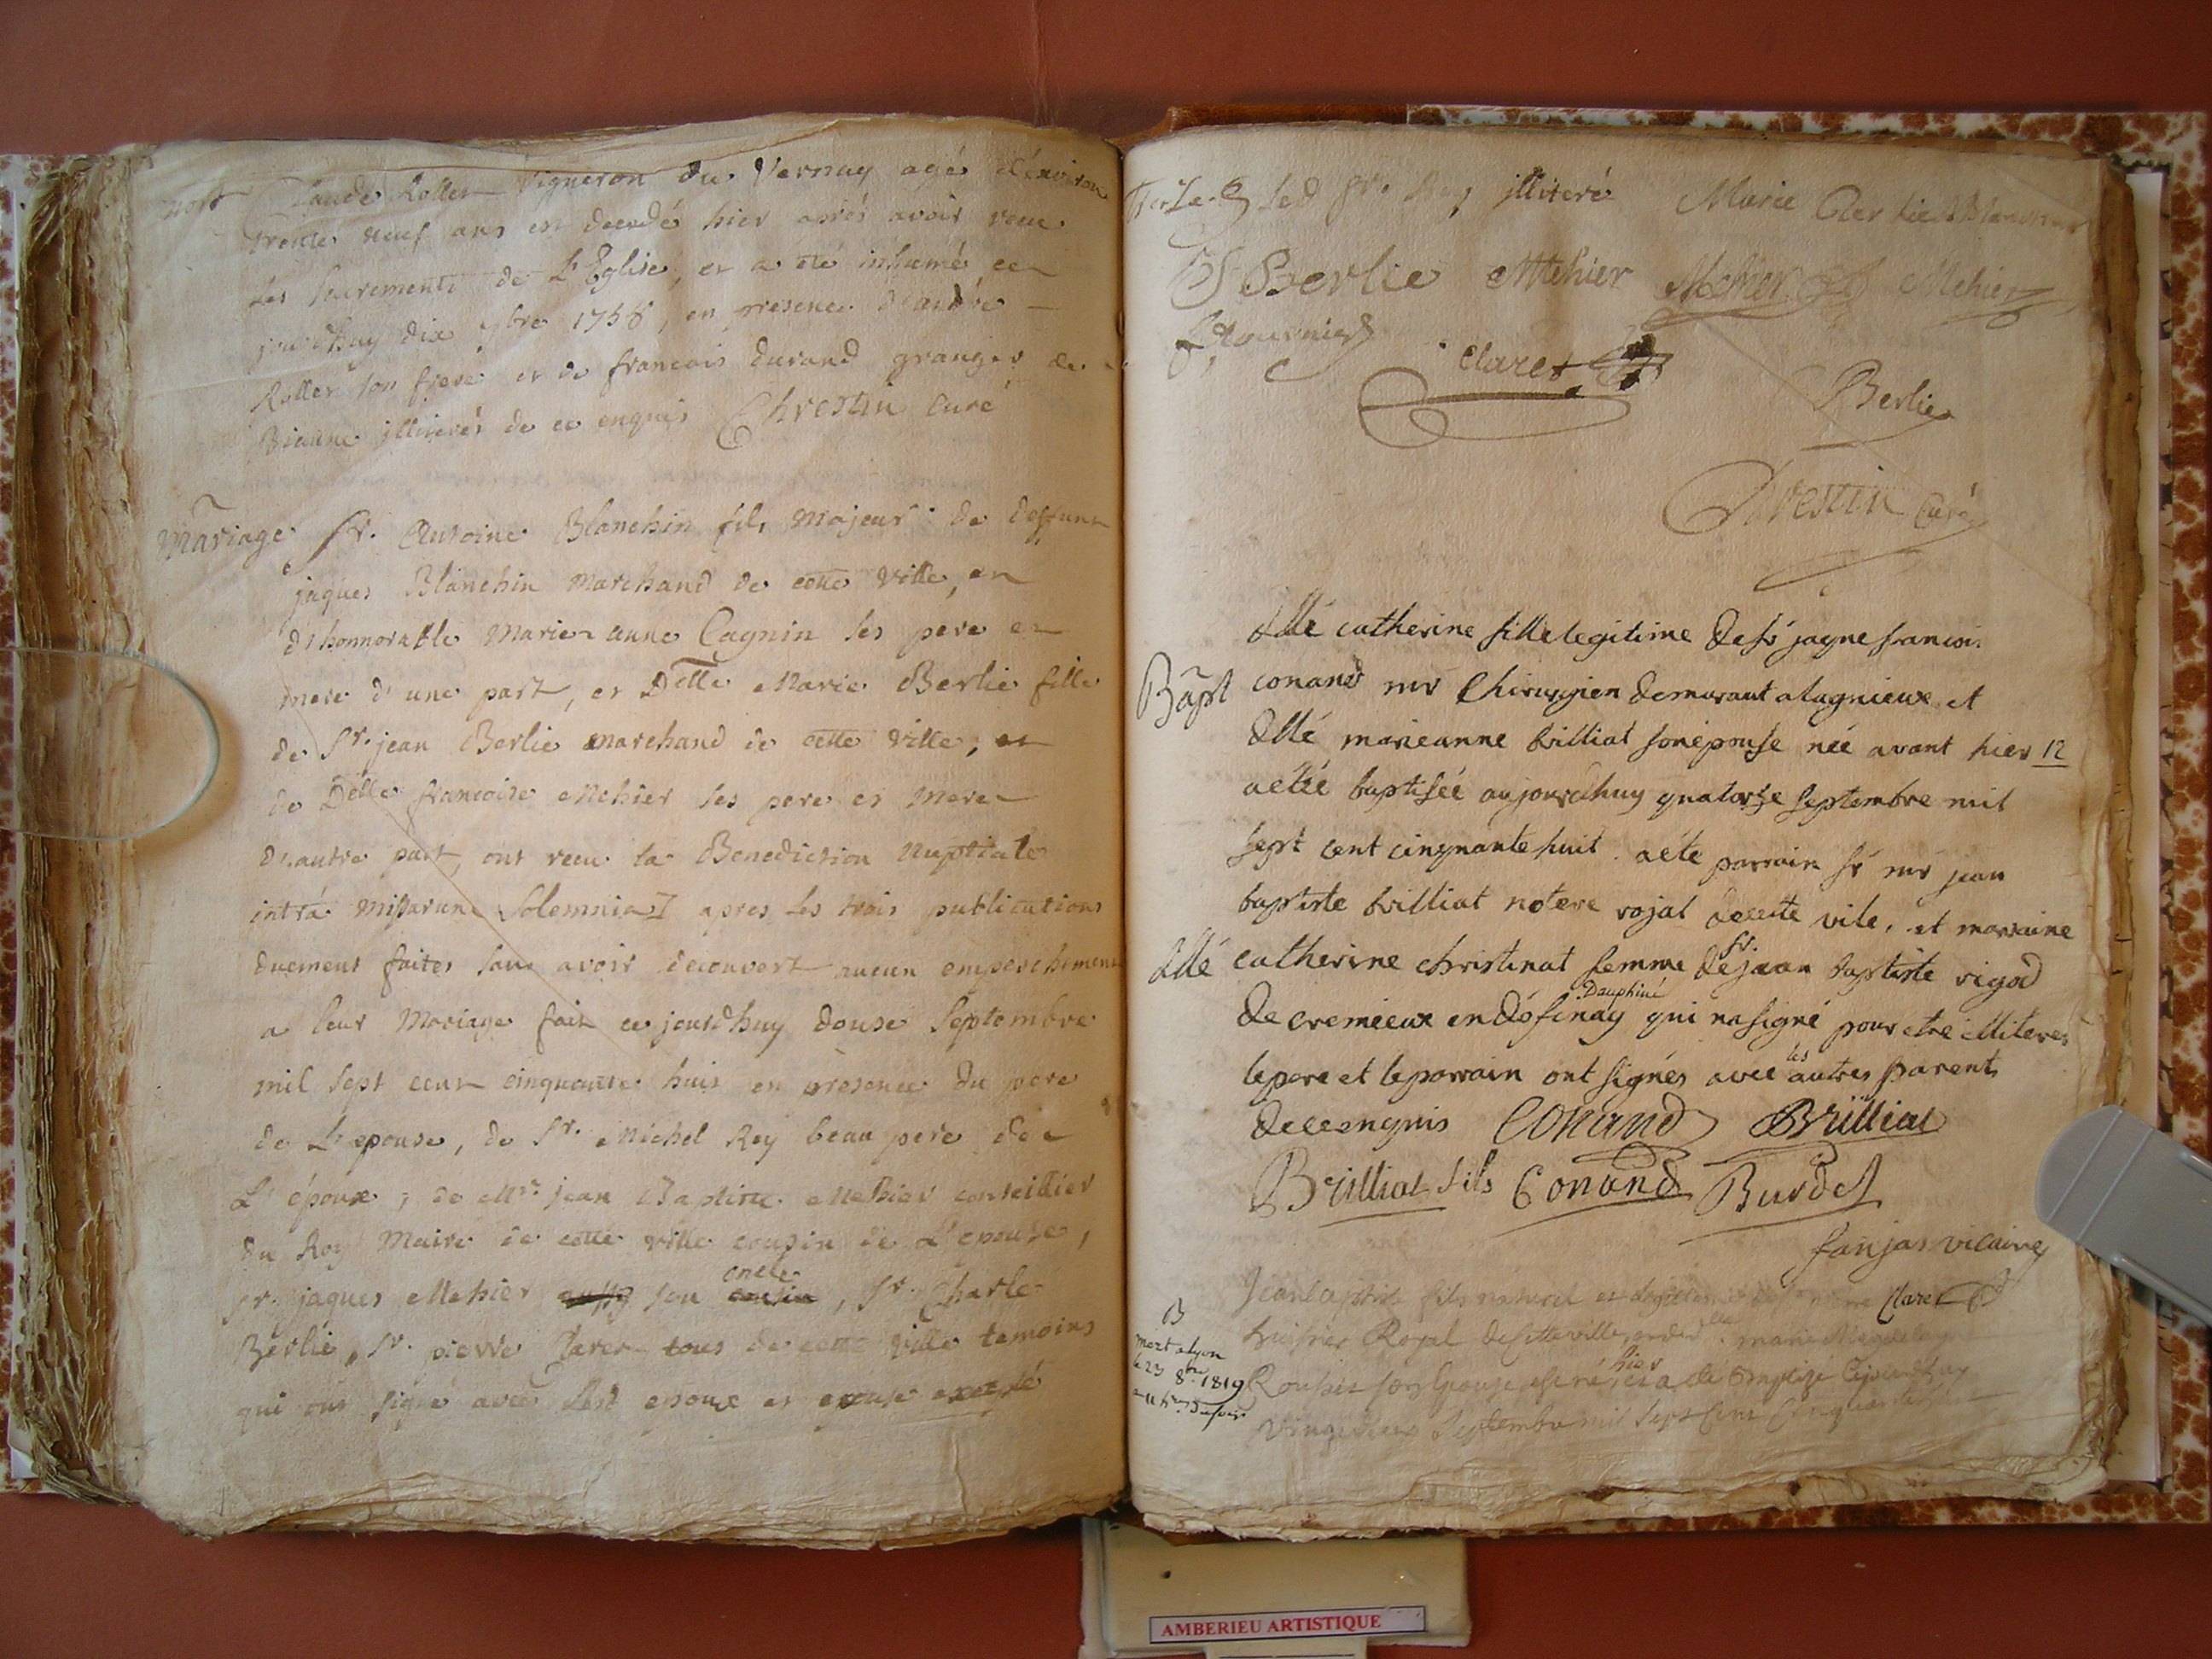 mort Claude Rollet Vigneron du Vernay agé d'environ
trente neuf ans est decedé hier après avoir receu
les sacrements de L'Eglise, et a été inhumé ce
jourdhuy dix 7bre 1758, en presence d'andré
Rollet son frere et de francois durand granger de
illiterés de ce enquis Chrestin Curé
Mariage Sr. Antoine Blanchin fils Majeur de deffunt
jaques Blanchin Marchand de cette ville, et
d'honnorable Marie anne Cagnin ses pere et
mere d'une part, et Delle Marie Berlie fille
de Sr. jean Berlie marchand de cette ville, et
de Delle francoise Mehier ses pere et mere
d'autre part, ont receu la Benediction Nuptiale
intrá missarum solemnia apres les trois publications
duement faites sans avoir decouvert aucun empeschement
a leur Mariage fait ce jourdhuy douse Septembre
mil sept cent cinquante huit en presence du pere
de L'epouse, de Sr. Michel Rey beau pere de
L'époux, de Mre jean Baptiste Mehier conseillier
du Roy Maire de cette ville cousin de L'epouse,
Sr. jaques Mehier son oncle, Sr. Charle
Berlie, Sr. pierre Claret tous de cette ville temoins
qui ont signé avec les epoux et epouse excepté
led Sr. Rey illiteré Marie Berlie Blanchin
Berlie Mehier Mehier Mehier
Claret
Berlie
Chrestin Curé
dllé catherine fille legitime de sr jaque francois
Bapt conand mr Chirurgien demurant a lagnieux et
dllé marieanne brilliat son epouse née avant hier 12
a étéé baptiséé aujourdhuy quatorze septembre mil
sept cent cinquante huit. a éte parrain sr mr jean
baptiste brilliat notere rojal de cette vile, et marraine
dllé catherine christinat femme de sr. jean baptiste rigod
de cremieux en dófinay Dauphiné qui na signé pour etre illiteree
le pere et le parrain ont signés avec les autres parents
de ce enquis Conand Brilliat
Brilliat fils Conand Burdet
fanjas vicaire
Jean baptiste fils naturel et legitime de Claret
huissier Royal de cette ville, et de marie
B
mort a lyon
le 23 8bre 1819
son Epouse est né hier et a été Baptizé Cejourdhuy
Septembre mil Sept Cent Cinquante
AMBERIEU ARTISTIQUE